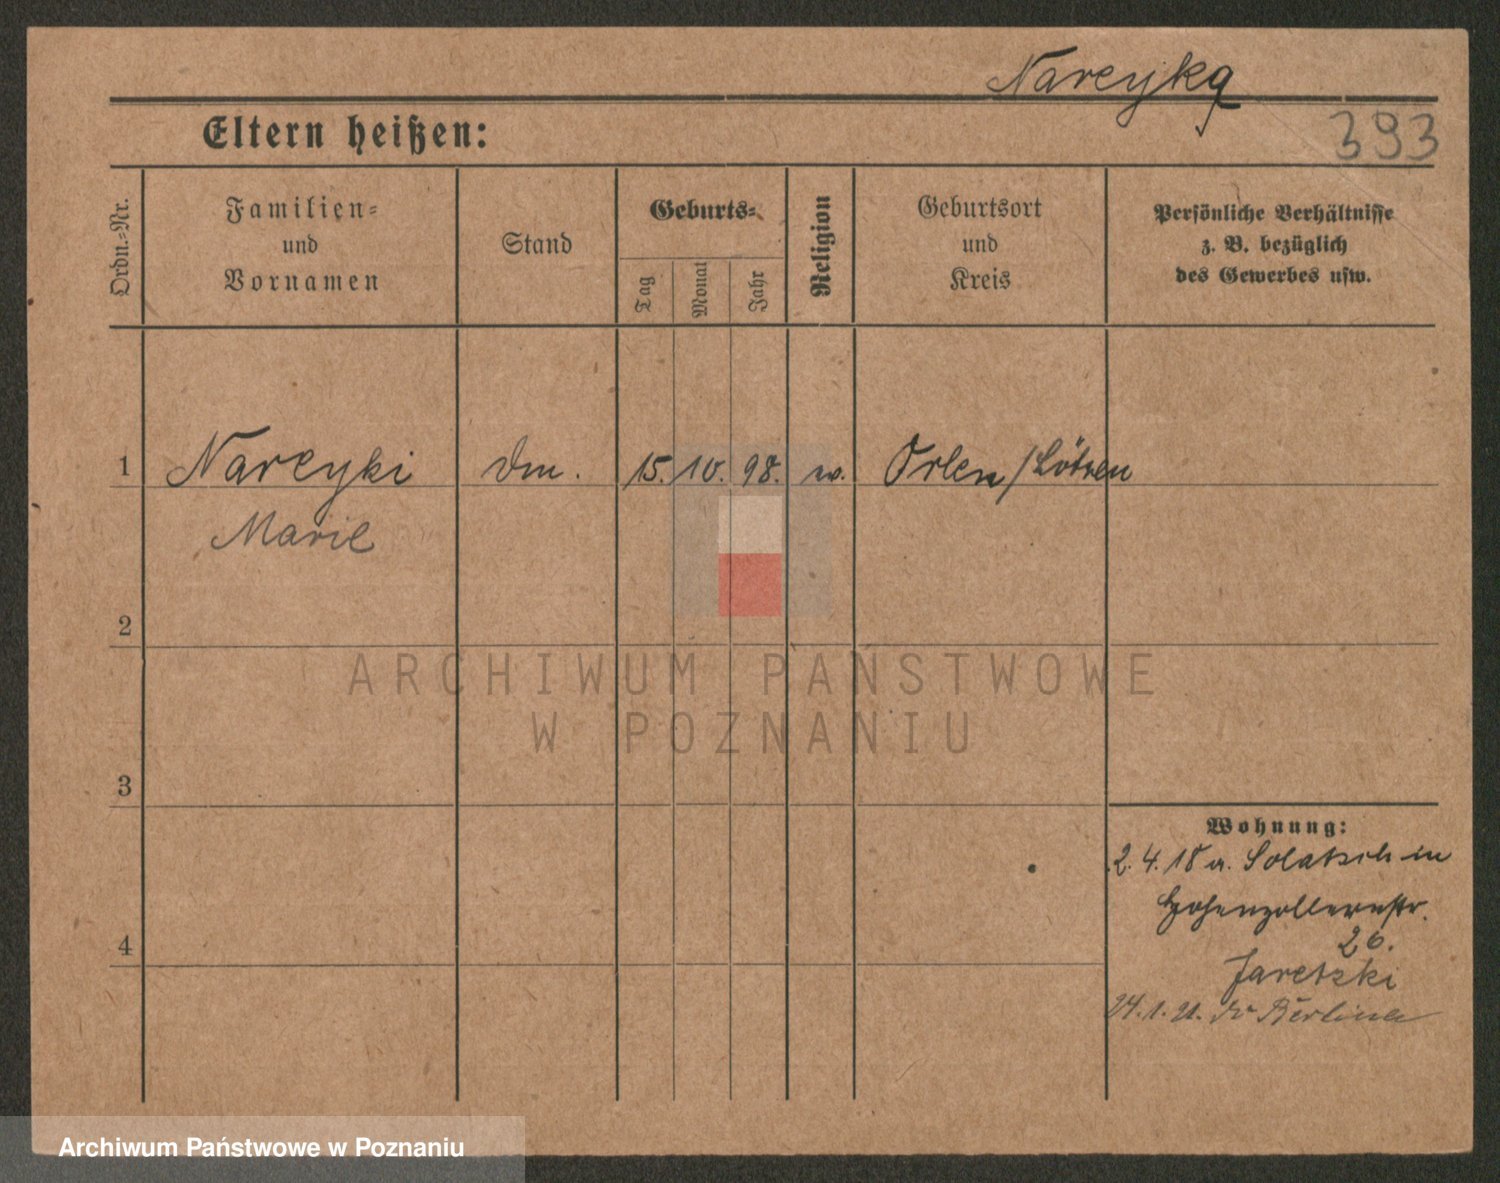 Nareyka
393
Eltern heißen:
Ordn.-Nr.
Familien-
und
Vornamen
Stand
Geburts-
Tag
Monat
Jahr
Religion
Geburtsort
und
Kreis
Persönliche Verhältnisse
z. B. bezüglich
des Gewerbes usw.
1 Nareyki 15. 10. 98. Orlen / Lötzen
Marie
2
ARCHIWUM PAŃSTWOWE
W POZNANIU
3
Wohnung:
2. 4. 18 a. Solatsch in
Hohenzollernstr.
26.
Jaretzki
24. 1. 21.
4
Archiwum Państwowe w Poznaniu